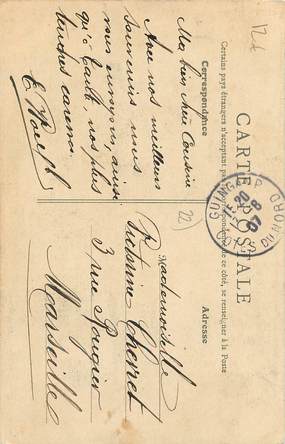 CARTE POSTALE
Certains pays étrangers n'acceptant pas de ce côté, se renseigner à la Poste
Correspondance
Adresse
Ma bien chère Cousine
Avec nos meilleurs
souvenirs nous
vous envoyons, ainsi
qu'à Gaston nos plus
tendres caresses
Mademoiselle
Cheiret
3 rue Pougier
Marseille
22